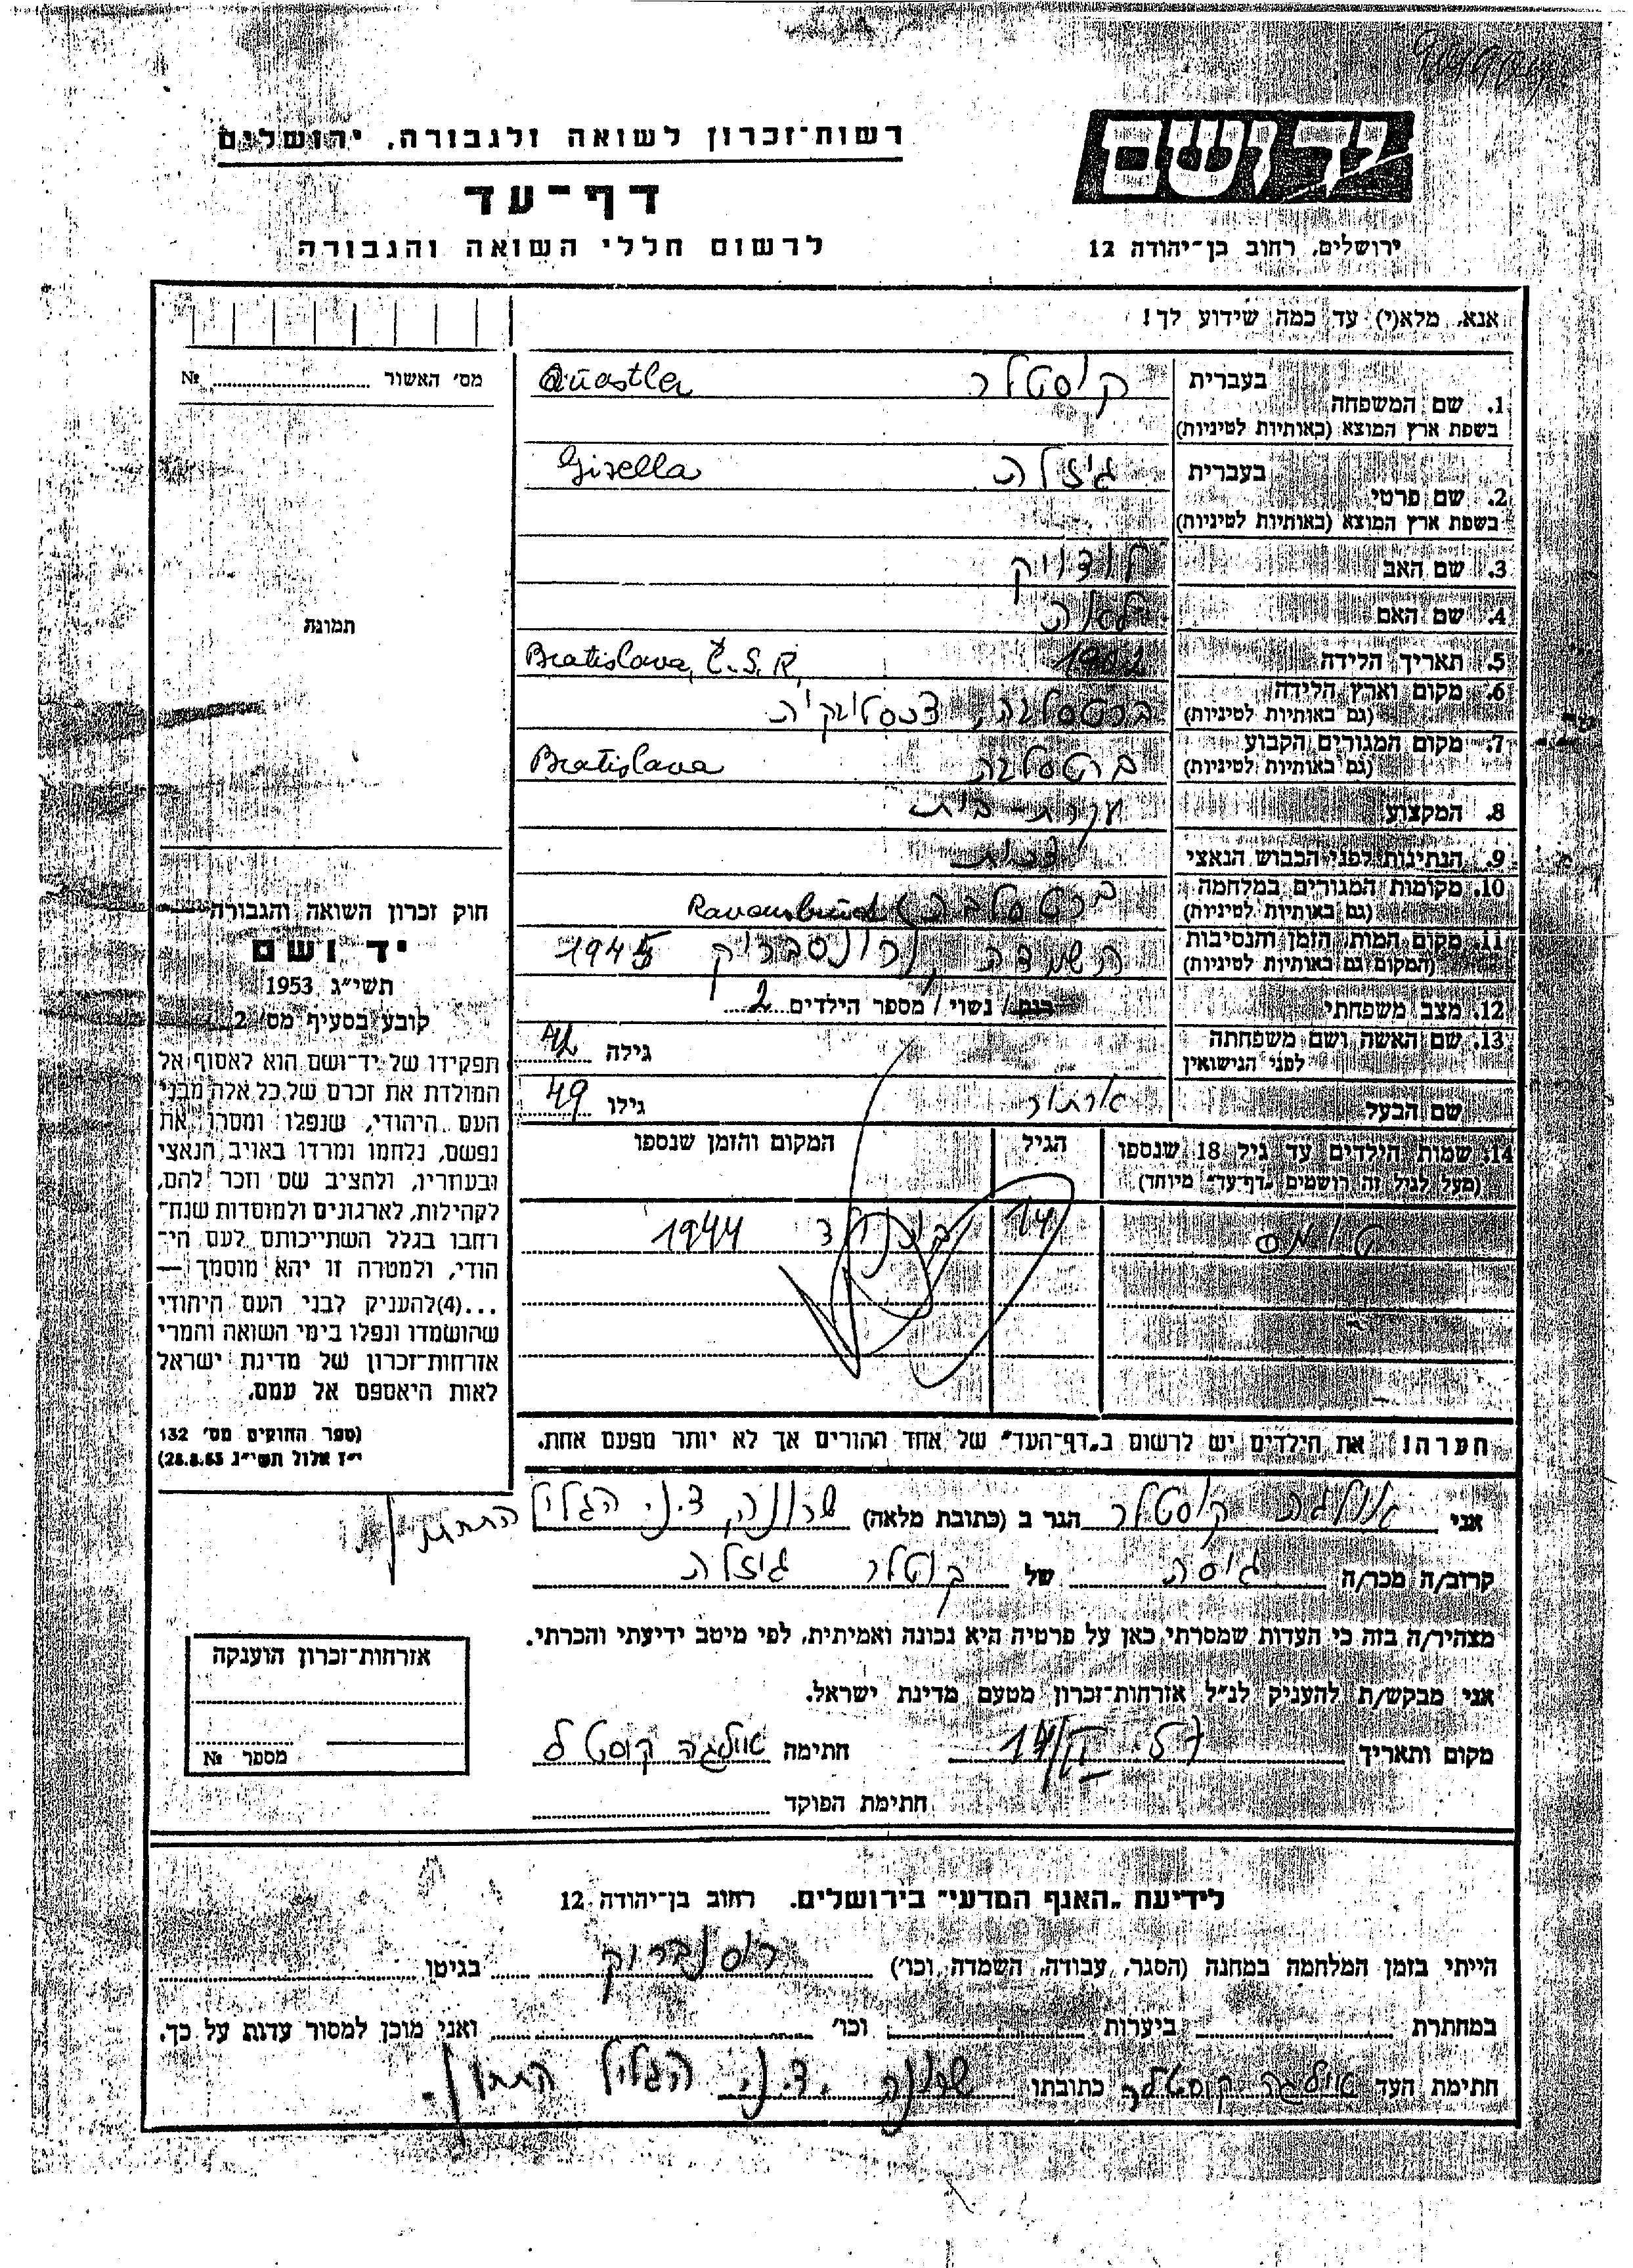 יד ושם
ירושלים, רחוב בן־יהודה 12
רשות־זכרון לשואה ולגבורה, ירושלים
דף־עד
לרשום חללי השואה והגבורה
אנא, מלא(י) עד כמה שידוע לך!
1. שם המשפחה בעברית קוסטלר Quastler
בשפת ארץ המוצא (באותיות לטיניות)
2. שם פרטי בעברית גיזלה Gisella
בשפת ארץ המוצא (באותיות לטיניות)
3. שם האב לודויק
4. שם האם לאה
5. תאריך הלידה 1902 Bratislava, Č.S.R.
6. מקום וארץ הלידה
(גם באותיות לטיניות) ברטסלבה,
7. מקום המגורים הקבוע
(גם באותיות לטיניות) ברטסלבה Bratislava
8. המקצוע עקרת-בית
9. הנתינות לפני הכבוש הנאצי
10. מקומות המגורים במלחמה
(גם באותיות לטיניות) ברטסלבה
11. מקום המות, הזמן והנסיבות
(המקום גם באותיות לטיניות) השמדה, 1945
12. מצב משפחתי רווק / נשוי / מספר הילדים 2
13. שם האשה ושם משפחתה
לפני הנישואין גילה 42
שם הבעל ארתור גילו 49
14. שמות הילדים עד גיל 18 שנספו הגיל המקום והזמן שנספו
(מעל לגיל זה רושמים „דף־עד” מיוחד)
טומס 14 1944
הערה: את הילדים יש לרשום ב„דף־העד” של אחד ההורים אך לא יותר מפעם אחת.
מס' האשור №
תמונה
חוק זכרון השואה והגבורה —
יד ושם
תשי"ג 1953
קובע בסעיף מס' 2
תפקידו של יד־ושם הוא לאסוף אל
המולדת את זכרם של כל אלה מבני
העם היהודי, שנפלו ומסרו את
נפשם, נלחמו ומרדו באויב הנאצי
ובעוזריו, ולהציב שם וזכר להם,
לקהילות, לארגונים ולמוסדות שנח־
רחבו בגלל השתייכותם לעם הי־
הודי, ולמטרה זו יהא מוסמך —
...(4) להעניק לבני העם היהודי
שהושמדו ונפלו בימי השואה והמרי
אזרחות־זכרון של מדינת ישראל
לאות היאספם אל עמם.
(ספר החוקים מס' 132
י"ז אלול תשי"ג 28.8.53)
אני אולגה קוסטלר הגר ב (כתובת מלאה) שרונה, ד.נ. הגליל התחתון
קרוב/ה מכר/ה גיסה של קוסטלר גיזלה
מצהיר/ה בזה כי העדות שמסרתי כאן על פרטיה היא נכונה ואמיתית, לפי מיטב ידיעתי והכרתי.
אני מבקש/ת להעניק לנ"ל אזרחות־זכרון מטעם מדינת ישראל.
מקום ותאריך חתימה אולגה קוסטלר
חתימת הפוקד
אזרחות־זכרון הוענקה
מספר №
לידיעת „האגף המדעי” בירושלים. רחוב בן־יהודה 12
הייתי בזמן המלחמה במחנה (הסגר, עבודה, השמדה וכו') בגיטו
במחתרת ביערות וכו' ואני מוכן למסור עדות על כך.
חתימת העד אולגה קוסטלר כתובתו שרונה ד.נ. הגליל התחתון.